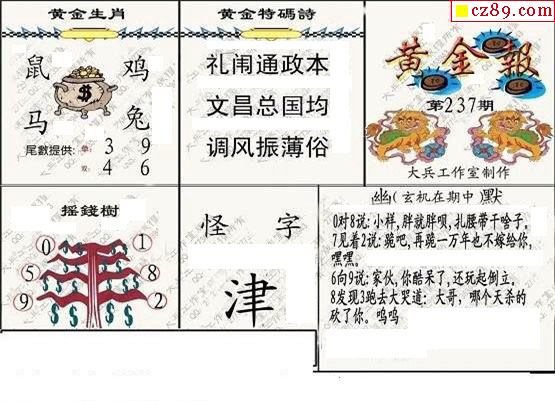 cz89.com
黄金生肖
鼠 鸡
马 兔
尾數提供: 单: 3 9
双: 4 6
黄金特碼詩
礼闹通政本
文昌总国均
调风振薄俗
黄金報
第237期
大兵工作室制作
摇錢樹
0 1
5 8
9 2
怪 字
津
幽(玄机在期中)默
0对8说: 小样, 胖就胖呗, 扎腰带干啥子。
7见着2说: 跪吧, 再跪一万年也不嫁给你,
嘿嘿。
6向9说: 家伙, 你酷呆了, 还玩起倒立。
8发现3跑去大哭道: 大哥, 哪个天杀的
砍了你。呜呜